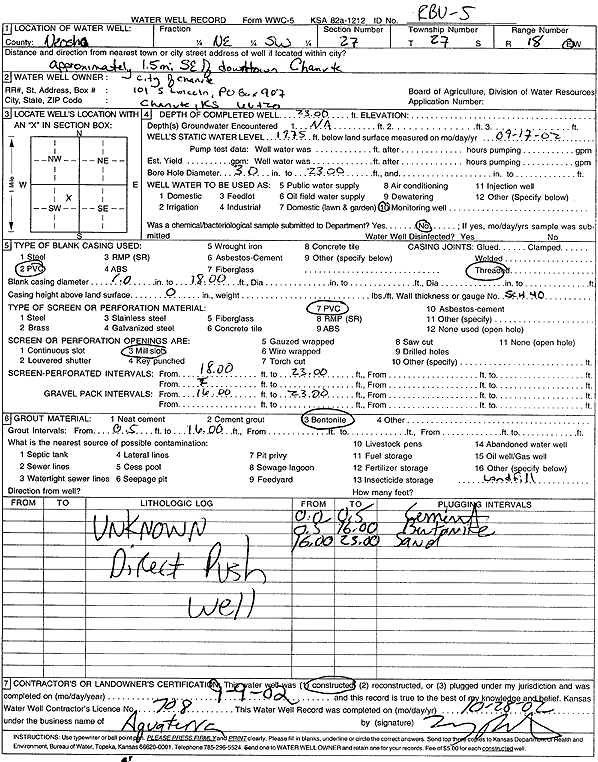 WATER WELL RECORD Form WWC-5 KSA 82a-1212 ID No. RBU-5
1 LOCATION OF WATER WELL: Fraction Section Number Township Number Range Number
County: Neosho ¼ NE ¼ SW ¼ 27 T 27 S R 18 E/W
Distance and direction from nearest town or city street address of well if located within city?
approximately 1.5mi SE of downtown Chanute
2 WATER WELL OWNER: City of Chanute
RR#, St. Address, Box # : 101 S Lincoln, PO Box 907 Board of Agriculture, Division of Water Resources
City, State, ZIP Code : Chanute, KS 66720 Application Number:
3 LOCATE WELL'S LOCATION WITH AN "X" IN SECTION BOX:
N
NW NE
W E
X
SW SE
1 Mile
4 DEPTH OF COMPLETED WELL 23.00 ft. ELEVATION:
Depth(s) Groundwater Encountered 1. NA ft. 2. ft. 3. ft.
WELL'S STATIC WATER LEVEL ft. below land surface measured on mo/day/yr 09-17-02
Pump test data: Well water was ft. after hours pumping gpm
Est. Yield gpm: Well water was ft. after hours pumping gpm
Bore Hole Diameter 3.0 in. to 23.00 ft., and in. to ft.
WELL WATER TO BE USED AS: 5 Public water supply 8 Air conditioning 11 Injection well
1 Domestic 3 Feedlot 6 Oil field water supply 9 Dewatering 12 Other (Specify below)
2 Irrigation 4 Industrial 7 Domestic (lawn & garden) 10 Monitoring well
Was a chemical/bacteriological sample submitted to Department? Yes No ; If yes, mo/day/yrs sample was submitted Water Well Disinfected? Yes No
5 TYPE OF BLANK CASING USED: 5 Wrought iron 8 Concrete tile CASING JOINTS: Glued Clamped
1 Steel 3 RMP (SR) 6 Asbestos-Cement 9 Other (specify below) Welded
2 PVC 4 ABS 7 Fiberglass Threaded
Blank casing diameter 1.0 in. to 18.00 ft., Dia in. to ft., Dia in. to ft.
Casing height above land surface 0 in., weight lbs./ft. Wall thickness or guage No. Sch.40
TYPE OF SCREEN OR PERFORATION MATERIAL: 7 PVC 10 Asbestos-cement
1 Steel 3 Stainless steel 5 Fiberglass 8 RMP (SR) 11 Other (specify)
2 Brass 4 Galvanized steel 6 Concrete tile 9 ABS 12 None used (open hole)
SCREEN OR PERFORATION OPENINGS ARE: 5 Gauzed wrapped 8 Saw cut 11 None (open hole)
1 Continuous slot 3 Mill slot 6 Wire wrapped 9 Drilled holes
2 Louvered shutter 4 Key punched 7 Torch cut 10 Other (specify) ft.
SCREEN-PERFORATED INTERVALS: From 18.00 ft. to 23.00 ft., From ft. to ft.
From ft. to ft., From ft. to ft.
GRAVEL PACK INTERVALS: From 16.00 ft. to 23.00 ft., From ft. to ft.
From ft. to ft., From ft. to ft.
6 GROUT MATERIAL: 1 Neat cement 2 Cement grout 3 Bentonite 4 Other
Grout Intervals: From 0.5 ft. to 16.00 ft., From ft. to ft., From ft. to ft.
What is the nearest source of possible contamination: 10 Livestock pens 14 Abandoned water well
1 Septic tank 4 Lateral lines 7 Pit privy 11 Fuel storage 15 Oil well/Gas well
2 Sewer lines 5 Cess pool 8 Sewage lagoon 12 Fertilizer storage 16 Other (specify below)
3 Watertight sewer lines 6 Seepage pit 9 Feedyard 13 Insecticide storage Landfill
Direction from well? How many feet?
FROM TO LITHOLOGIC LOG FROM TO PLUGGING INTERVALS
0.0 0.5 Cement
UNKNOWN 0.5 16.00 Bentonite
16.00 23.00 Sand
Direct Push
Well
7 CONTRACTOR'S OR LANDOWNER'S CERTIFICATION: This water well was (1) constructed (2) reconstructed, or (3) plugged under my jurisdiction and was
completed on (mo/day/year) 9-9-02 and this record is true to the best of my knowledge and belief. Kansas
Water Well Contractor's Licence No. 708 This Water Well Record was completed on (mo/day/yr) 10-28-02
under the business name of Aquaterra by (signature)
INSTRUCTIONS: Use typewriter or ball point pen. PLEASE PRESS FIRMLY and PRINT clearly. Please fill in blanks, underline or circle the correct answers. Send top three copies to Kansas Department of Health and
Environment, Bureau of Water, Topeka, Kansas 66620-0001. Telephone 785-296-5524. Send one to WATER WELL OWNER and retain one for your records. Fee of $5.00 for each constructed well.